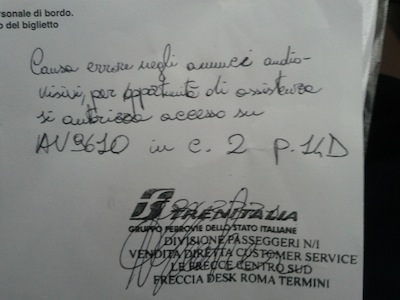 rsonale di bordo.
o del biglietto
Causa errore negli annunci audio-
visivi, per opportunità di assistenza
si autorizza accesso su
AV9610 in c. 2 p. 14D
TRENITALIA
GRUPPO FERROVIE DELLO STATO ITALIANE
DIVISIONE PASSEGGERI N/I
VENDITA DIRETTA CUSTOMER SERVICE
LE FRECCE CENTRO SUD
FRECCIA DESK ROMA TERMINI